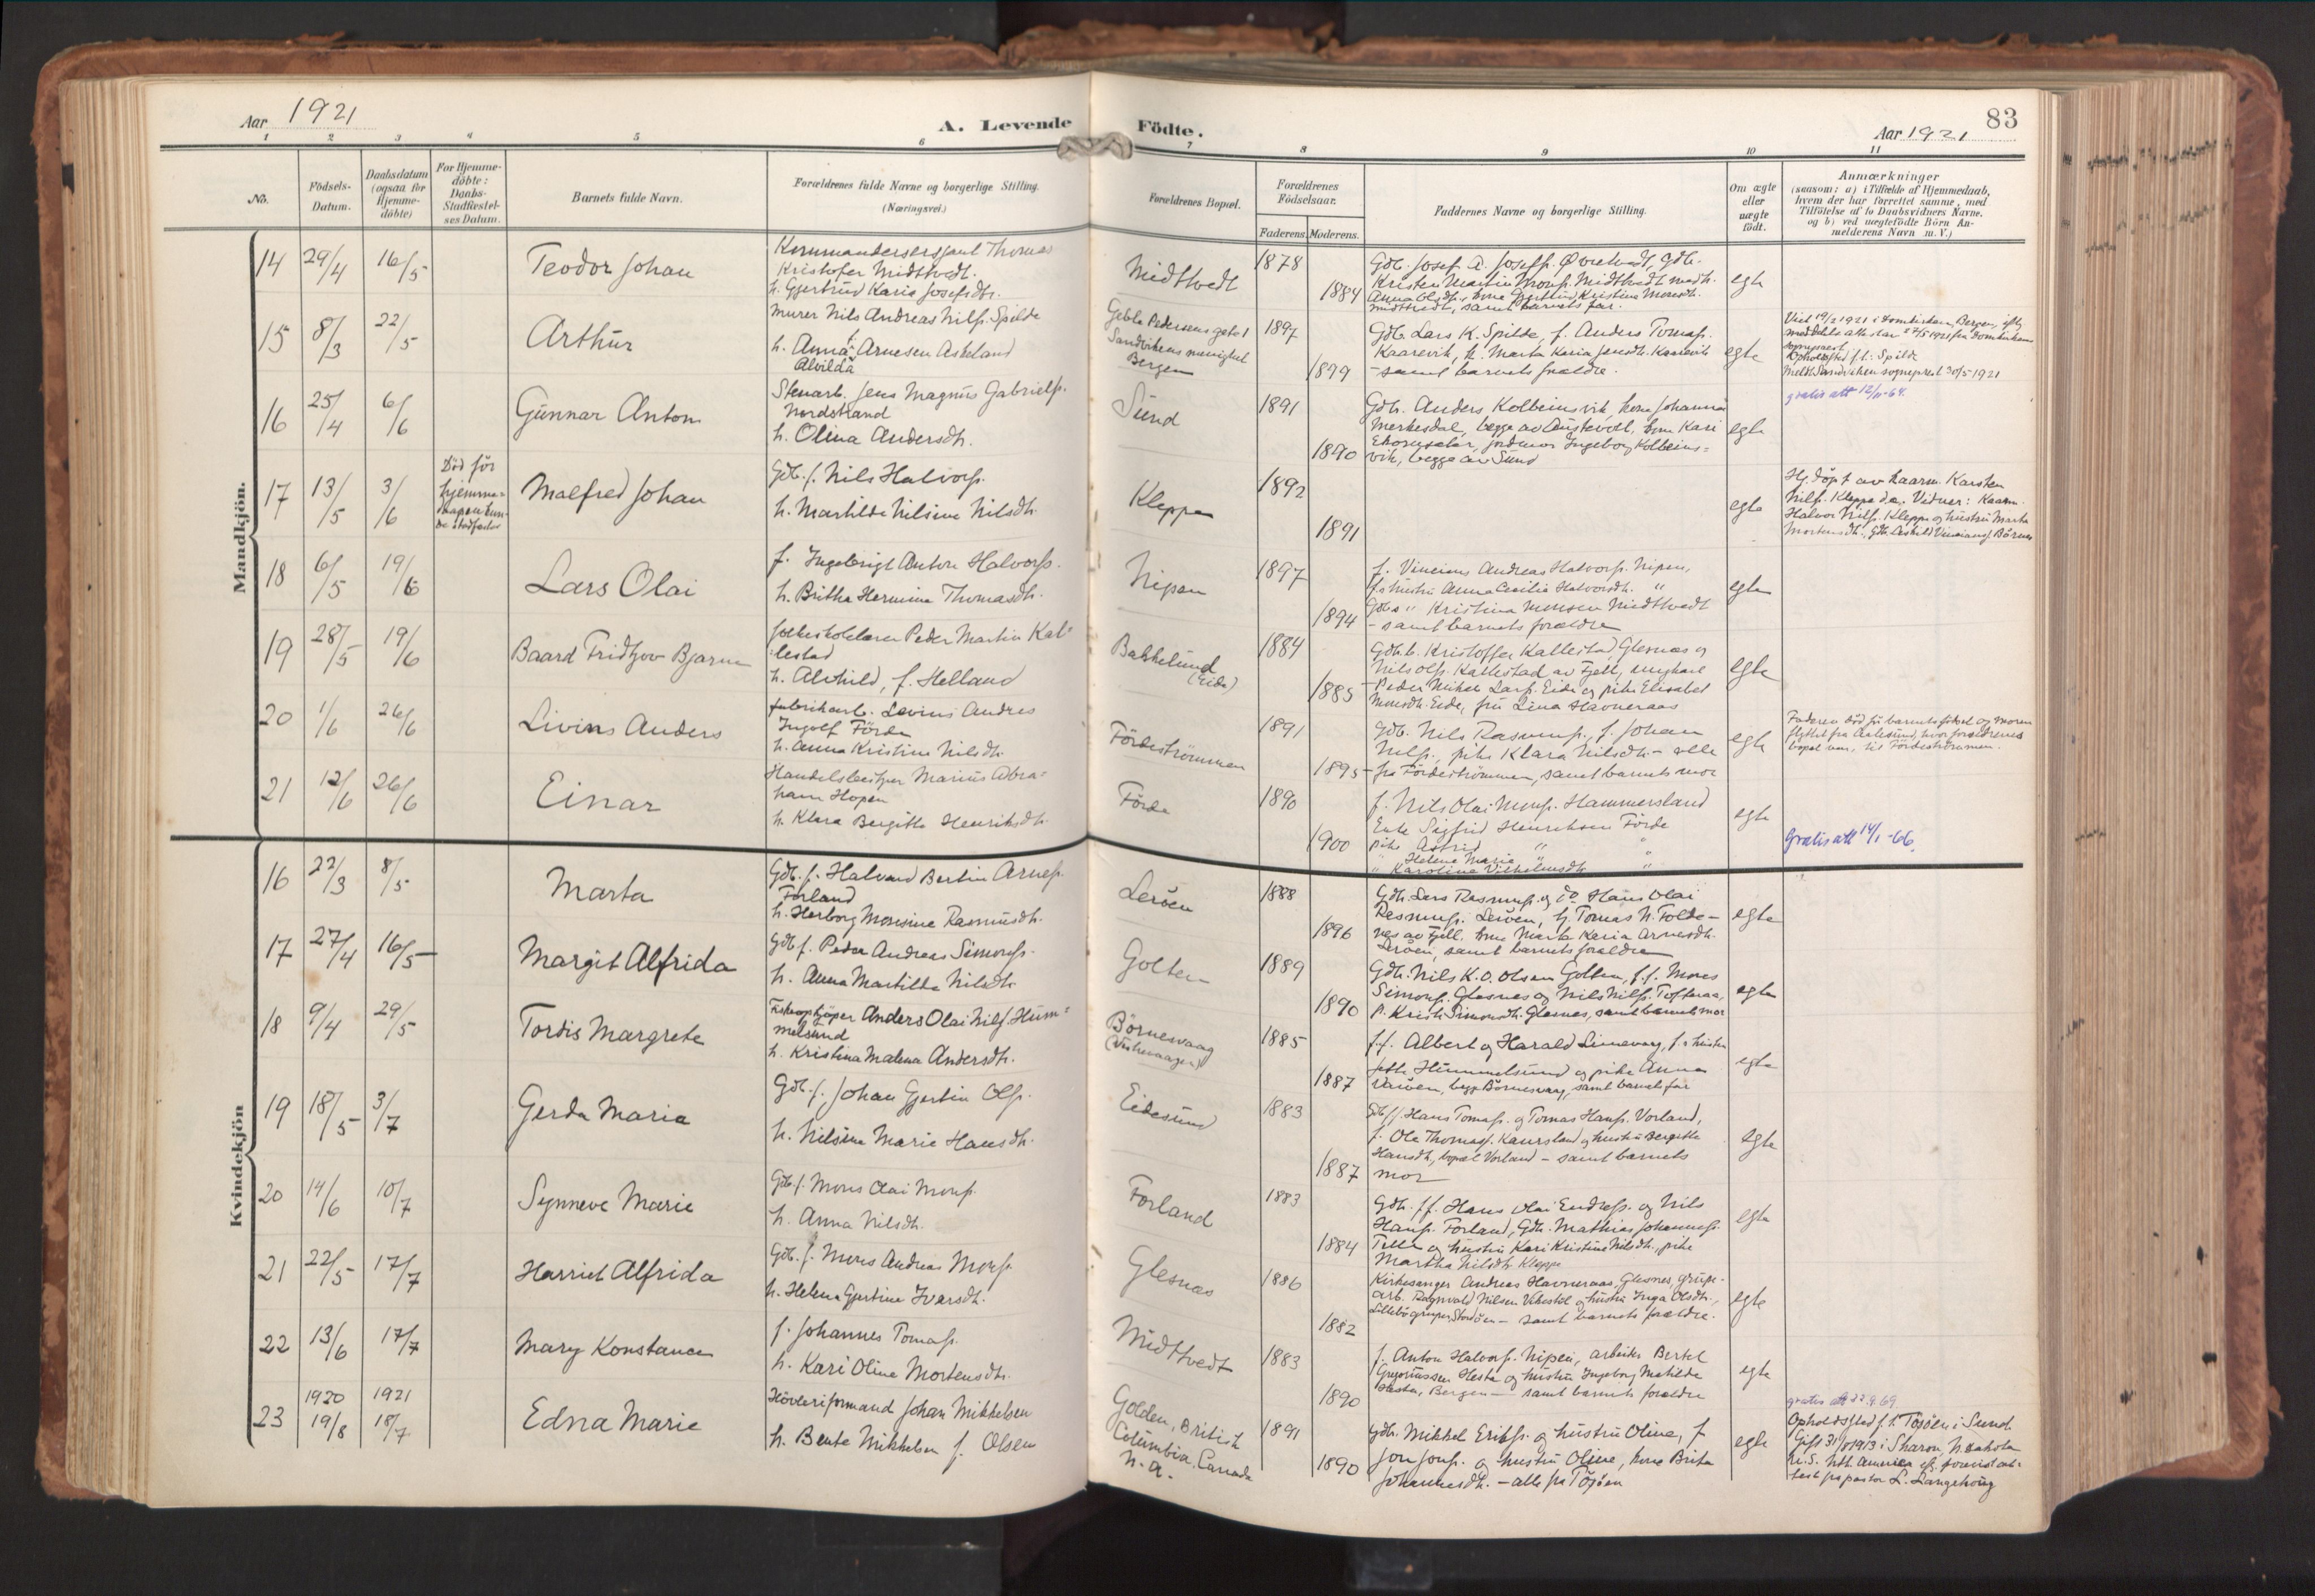 Aar 1921
A. Levende
Födte.
83
Aar 1921
1 2 3 4 5 6 7 8 9 10 11
No.
Födsels-
Datum.
Daabsdatum
(ogsaa for
Hjemme-
döbte)
For Hjemme-
döbte:
Daabs-
Stadfæstel-
ses Datum.
Barnets fulde Navn.
Forældrenes fulde Navne og borgerlige Stilling.
(Næringsvei.)
Forældrenes Bopæl.
Forældrenes
Födselsaar.
Faderens. Moderens.
Faddernes Navne og borgerlige Stilling.
Om ægte
eller
uægte
födt.
Anmærkninger
(saasom: a) i Tilfælde af Hjemmedaab,
hvem der har forrettet samme, med
Tilföielse af to Daabsvidners Navne.
og b) ved uægtefödte Börn An-
melderens Navn m. V.)
Mandkjön.
14 29/4 16/5 Teodor Johan
Kommandersersjant Thomas
Kristofer Midttvedt.
h. Gjertrud Karia Josefsdtr.
Midttvedt
1878
1884
Gdb. Josef A. Josefs. Övretvedt, gdb.
Kristen Martin Mons. Midttvedt
Kristina Monsdtr.
Midttvedt, samt barnets far.
egte
15 8/3 22/5 Arthur
Murer Nils Andreas Nilss. Spilde
h. Anna Arnesen Askeland
Alvilda
Geble Pedersens gate 1
Sandvikens menighet
Bergen
1897
1899
Gdb. Lars K. Spilde, f. Anders Tomass.
Kaarevik, h. Marta Karia Jensdtr. Kaarevik
- samt barnets forældre.
egte
Viet 19/2 1921 i Domkirken, Bergen,
sogneprest
Opholdssted f.t. Spilde
Meldt Sandviken sogneprest 30/5 1921
16 25/4 6/6 Gunnar Anton
Stenarb. Jens Magnus Gabrielss.
Nordstrand
h. Olina Andersdtr.
Sund
1891
1890
Gdb. Anders Kolbeinsvik, kone Johanna
Merkesdal, begge av Austevoll, kone Kari
jordmor Ingeborg Kolbeins=
vik, begge av Sund
egte
gratis att 12/11-64.
17 13/5 3/6
Död för
hjemme=
daapen kun=
de stadfestes
Malfred Johan
Gdb. f. Nils Halvors.
h. Martilde Nilsine Nilsdtr.
Kleppe
1892
1891
egte
Hj. döpt av haarm. Karsten
Nilss. Kleppe d.e. Vidner: Kaarm.
Halvor Nilss. Kleppe og hustru Marta
Mortensdtr., Gdb. Börnes
18 6/5 19/6 Lars Olai
f. Ingebrigt Anton Halvors.
h. Britha Hermine Thomasdtr.
Nipen
1897
1894
f. Vincens Andreas Halvors. Nipen,
f.s hustru Anna Cecilia Halvorsdtr. "
Gdb.s " Kristina Monsen Midttvedt
- samt barnets forældre
egte
19 28/5 19/6 Baard Fridtjov Bjarne
folkeskolelærer Peder Martin Kal=
lestad
h. Alvhild, f. Helland
Bakkelund
(Eide)
1884
1885
Gdb. Kristoffer Kallestad, Glesnes og
Nils Olss. Kallestad av Fjell, ungkarl
Peder Mikal Larss. Eide og pike Elisabet
Monsdtr. Eide, fru Lina Havneraas
egte
20 1/6 26/6 Livins Anders
fabrikarb. Levins Andres
Ingolf Förde
h. Anna Kristine Nilsdtr.
Fördeströmmen
1891
1895
Gdb. Nils Rasmuss., f. Johan
Nilss., pike Klara Nilsdtr. - alle
fra Fördeströmmen, samt barnets mor
egte
Faderen död för barnets födsel og moren
flyttet fra Aalesund, hvor forældrenes
bopæl var, til Fördeströmmen.
21 12/6 26/6 Einar
Handelsbestyrer Marius Abra=
ham Hopen
h. Klara Bergitte Henriksdtr.
Förde
1890
1900
f. Nils Olai Monss. Hammersland
Enke Sigfrid Henriksen Förde
pike Astrid " "
" Helene Marie " "
" Karoline Vilhelmsdtr. "
egte
Gratis att 14/1-66.
Kvindekjön
16 22/3 8/5 Marta
Gdb. f. Halvard Bertin Arness.
Forland
h. Herborg Monsine Rasmusdtr.
Leröen
1888
1896
Gdb. Lars Rasmuss. og do Hans Olai
Rasmuss. Leröen, hj. Tomas N. Folde-
nes av Fjell, kone Marta Karia Arnesdtr.
Leröen, samt barnets forældre
egte
17 27/4 16/5 Margit Alfrida
Gdb f. Peder Andreas Simonss.
h. Anna Martilda Nilsdtr.
Golten
1889
1890
Gdb. Nils K. O. Olsen Golten, f.f. Mons
Simons. Glesnes og Nils Nilss. Tofteraa,
p. Krist. Simonsdtr. Glesnes, samt barnets mor
egte
18 9/4 29/5 Tordis Margrete
Fiskeopkjöper Anders Olai Nilss. Hum=
melsund
h. Kristina Malena Andersdtr.
Börnesvaag
(Vikevaagen)
1885
1887
f.f. Albert og Harald Limevaag, f.s hustru
Hummelsund og pike Anna
Varöen, begge Börnesvaag, samt barnets far
egte
19 18/5 3/7 Gerda Maria
Gdb. f. Johan Gjertin Olss.
h. Nilsine Marie Hansdtr.
Eidesund
1883
1887
Gdb. f.f. Hans Tomass. og Tomas Hanss. Vorland,
f. Ole Thomass. Kausland og hustru Bergitte
Hansdtr., bopæl Vorland - samt barnets
mor
egte
20 14/6 10/7 Synneve Marie
Gdb. f. Mons Olai Monss.
h. Anna Nilsdtr.
Forland
1883
1884
Gdb. f.f. Hans Olai Endress. og Nils
Hanss. Forland, Gdb. Mathias Johanness.
Telle og hustru Kari Kristine Nilsdtr., pike
Martha Nilsdtr. Kleppe
egte
21 22/5 17/7 Harriet Alfrida
Gdb. f. Mons Andreas Monss.
h. Helena Gjertine Iversdtr.
Glesnes
1886
1882
Kirkesanger Andreas Havneraas, Glesnes, grube-
arb. Ragnvald Nilsen Vikestöl og hustru Inga Olsdtr.,
Lillebö gruper, Stordöen - samt barnets forældre.
egte
22 13/6 17/7 Mary Konstance
f. Johannes Tomass.
h. Kari Oline Mortensdtr.
Midttvedt
1883
1890
f. Anton Halvors. Nipen, arbeider Bertel
Gregoriussen Hesta og hustru Ingeborg Matilde
Hesta, Bergen - samt barnets forældre
egte
23 1920 19/8 1921 18/7 Edna Marie
Hövleriformand Johan Mikkelsen
h. Bente Mikkelsen f. Olsen
Golden, British
Columbia, Canada
N.A.
1891
1890
Gdb. Mikkel Erikss. og hustru Oline, f.
Jon Jonss. og hustru Oline, kone Brita
Johannesdtr. - alle fra Tösöen
egte
gratis att 22.9.69
Opholdssted f.t. Tösöen i Sund.
Gift 31/8 1913 i Sharon, N. Dakota
U.S. Nth. America
fra pastor L. Langehoug